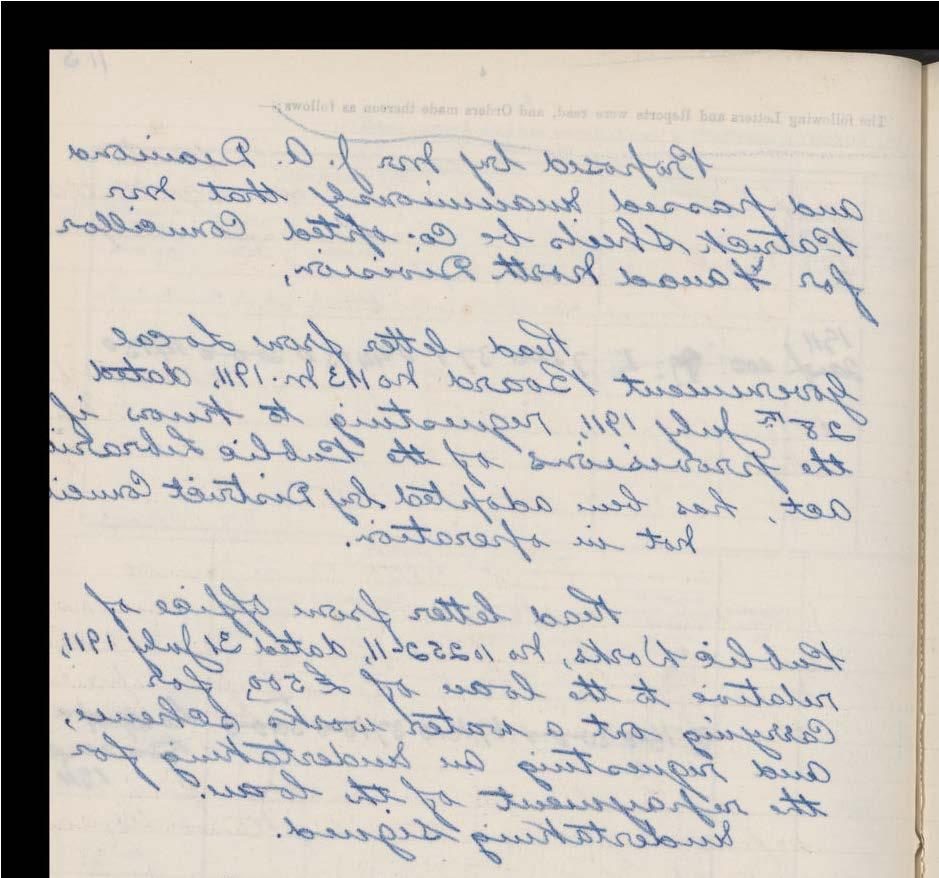 113
4
The following Letters and Reports were read, and Orders made thereon as follows;—
Proposed by Mr J. A. Diamond
and passed unanimously that Mr
Patrick Shiels be Co-opted Councillor
for Fanad North Division,
Read letter from Local
Government Board No 1143 M. 1911, dated
28th July 1911, requesting to know if
the provisions of the Public Librarie
act, has been adopted by District Counci
not in operation.
Read letter from Office of
Public Works, No 11252-11, dated 31 July 1911,
relative to the loan of £500, for
Carrying out a waterworks scheme,
and requesting an undertaking for
the repayment of the loan.
Undertaking signed.